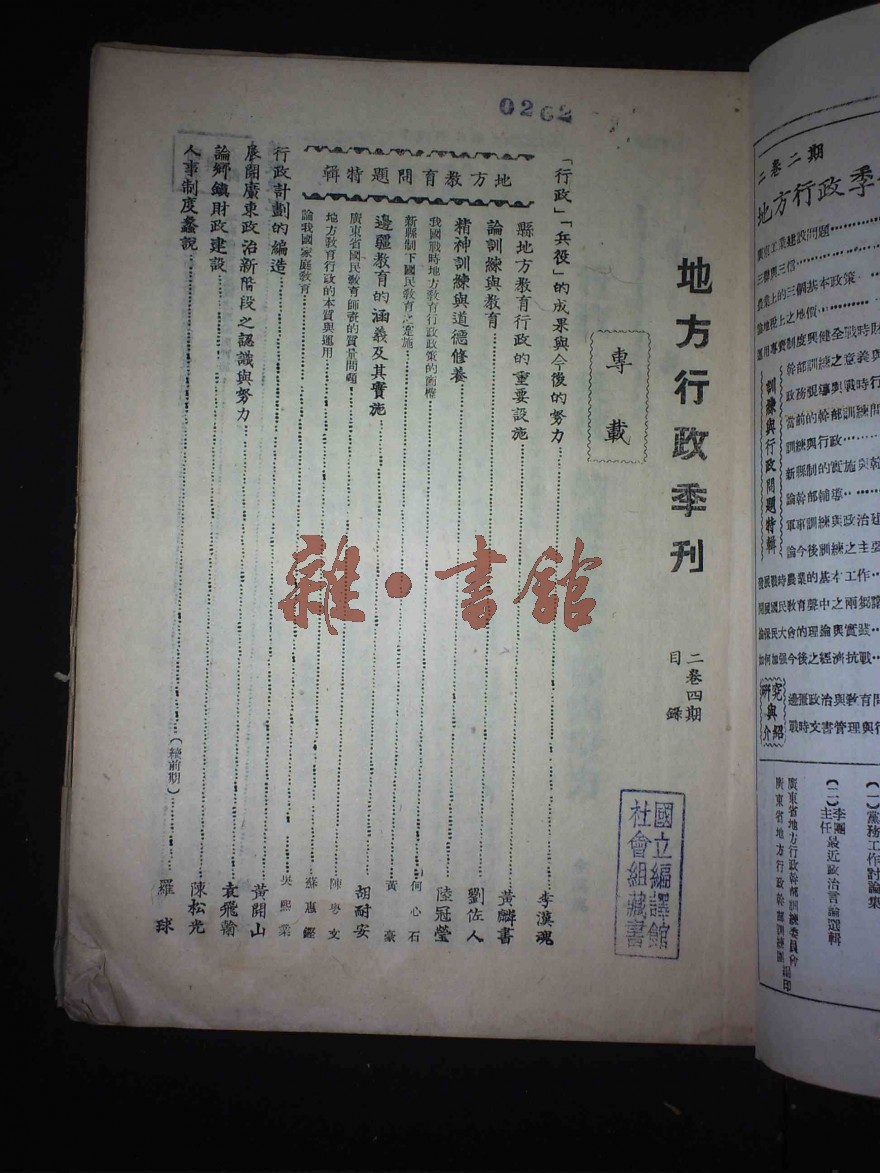 0262
地方行政季刊
二卷四期
目錄
專載
「行政」「兵役」的成果與今後的努力 李漢魂
地方教育問題特輯
縣地方教育行政的重要設施 黃麟書
論訓練與教育 劉佐人
精神訓練與道德修養 陸冠瑩
我國戰時地方教育行政政策的商榷 何心石
新縣制下國民教育之實施 黃豪
邊疆教育的涵義及其實施 胡耐安
廣東省國民教育師資的質量問題 陳粵文
地方教育行政的本質與運用 蘇惠鏗
論我國家庭教育 吳熙業
行政計劃的編造 黃開山
展開廣東政治新階段之認識與努力 袁飛翰
論鄉鎮財政建設 陳松光
人事制度蠡說 (續前期) 羅球
國立編譯館
社會組藏書
雜·書館
二卷二期
地方行政季
廣東工業建設問題
三聯與三信
農業上的三個基本政策
論地稅上之地價
運用專賣制度與健全戰時財
訓練與行政問題特輯
幹部訓練之意義與
政務張導與戰時行
當前的幹部訓練問
訓練與行政
新縣制的實施與幹
論幹部輔導
軍事訓練與政治建
論今後訓練之主要
發展戰時農業的基本工作
開展國民教育聲中之兩鄉鎮
論保民大會的理論與實際
如何加强今後之經濟抗戰
研究與介紹
邊疆政治與教育問
戰時文書管理與行
(一)黨務工作討論集
(二)李主任團最近政治言論選輯
廣東省地方行政幹部訓練委員會
廣東省地方行政幹部訓練團 編印